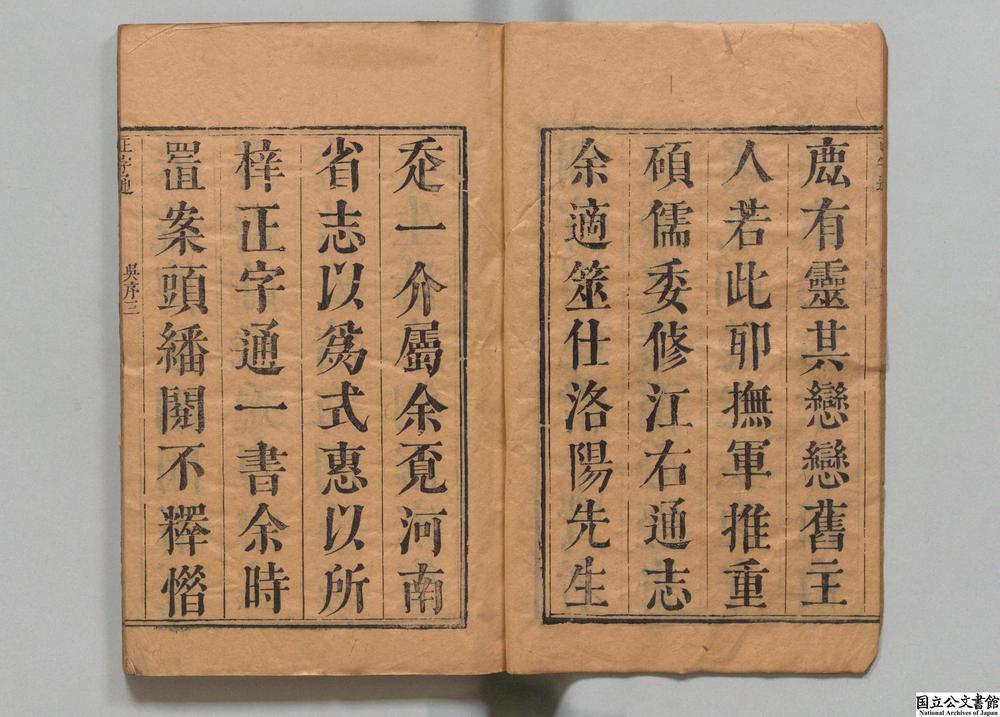 鹿有靈其戀戀舊主
人若此耶撫軍推重
碩儒委修江右通志
余適筮仕洛陽先生
走一介屬余覓河南
省志以為式惠以所
梓正字通一書余時
置案頭繙閱不釋惜
正字通
吳序三
国立公文書館
National Archives of Japan